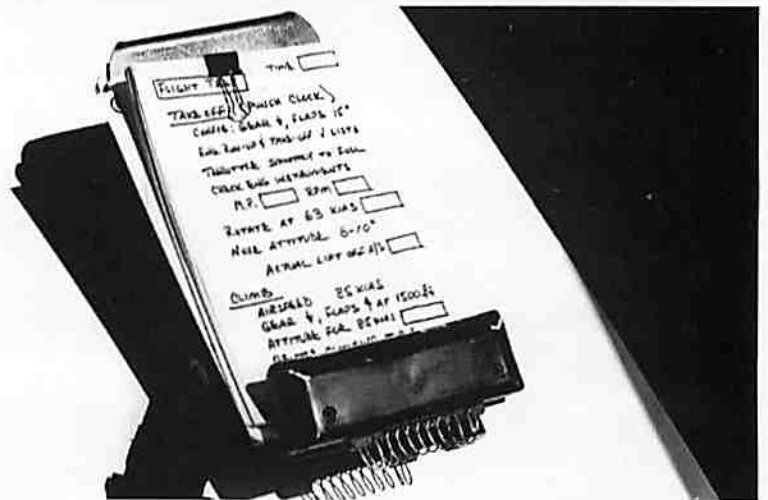 TIME
FLIGHT
TAKE OFF (PUNCH CLOCK)
CONFIG: GEAR ↓, FLAPS 15°
ENG RUN-UP & TAKE-OFF √ LISTS
THROTTLE SMOOTHLY TO FULL
CHECK ENG INSTRUMENTS
M.P. RPM
ROTATE AT 63 KIAS
NOSE ATTITUDE 8-10°
ACTUAL LIFT OFF A/S
CLIMB
AIRSPEED 85 KIAS
GEAR ↑, FLAPS ↑ AT 1500 ft
ATTITUDE FOR 85 KIAS